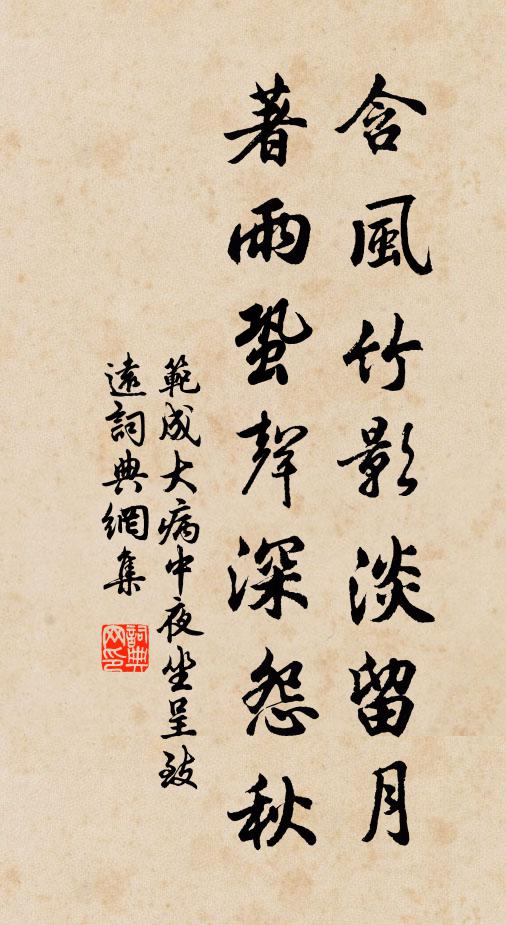 含風竹影淡留月
著雨蛩聲深怨秋
範成大病中夜坐呈致
遠詞典網集
詞典
网印